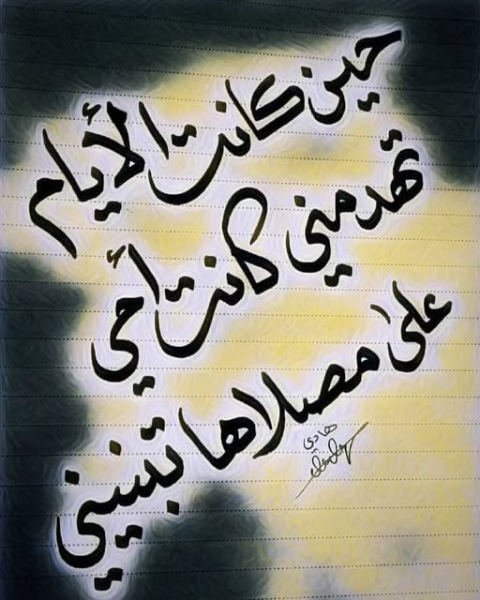 حين كانت الأيام
تهدمني كانت أمي
على مصلاها تبنيني
هادي